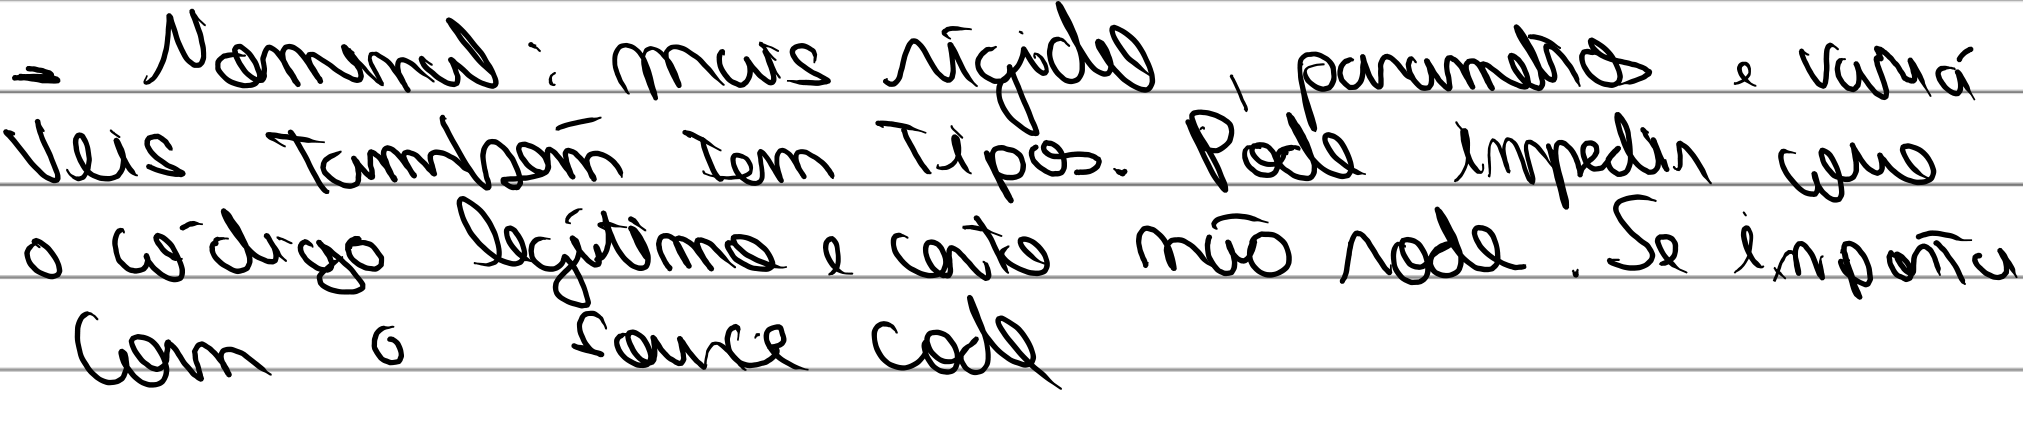 - Nominal: mais rígida, parametros e variá
veis também tem tipos. Pode impedir que
o código legítimo e certo não rode. Se importa
com o source code